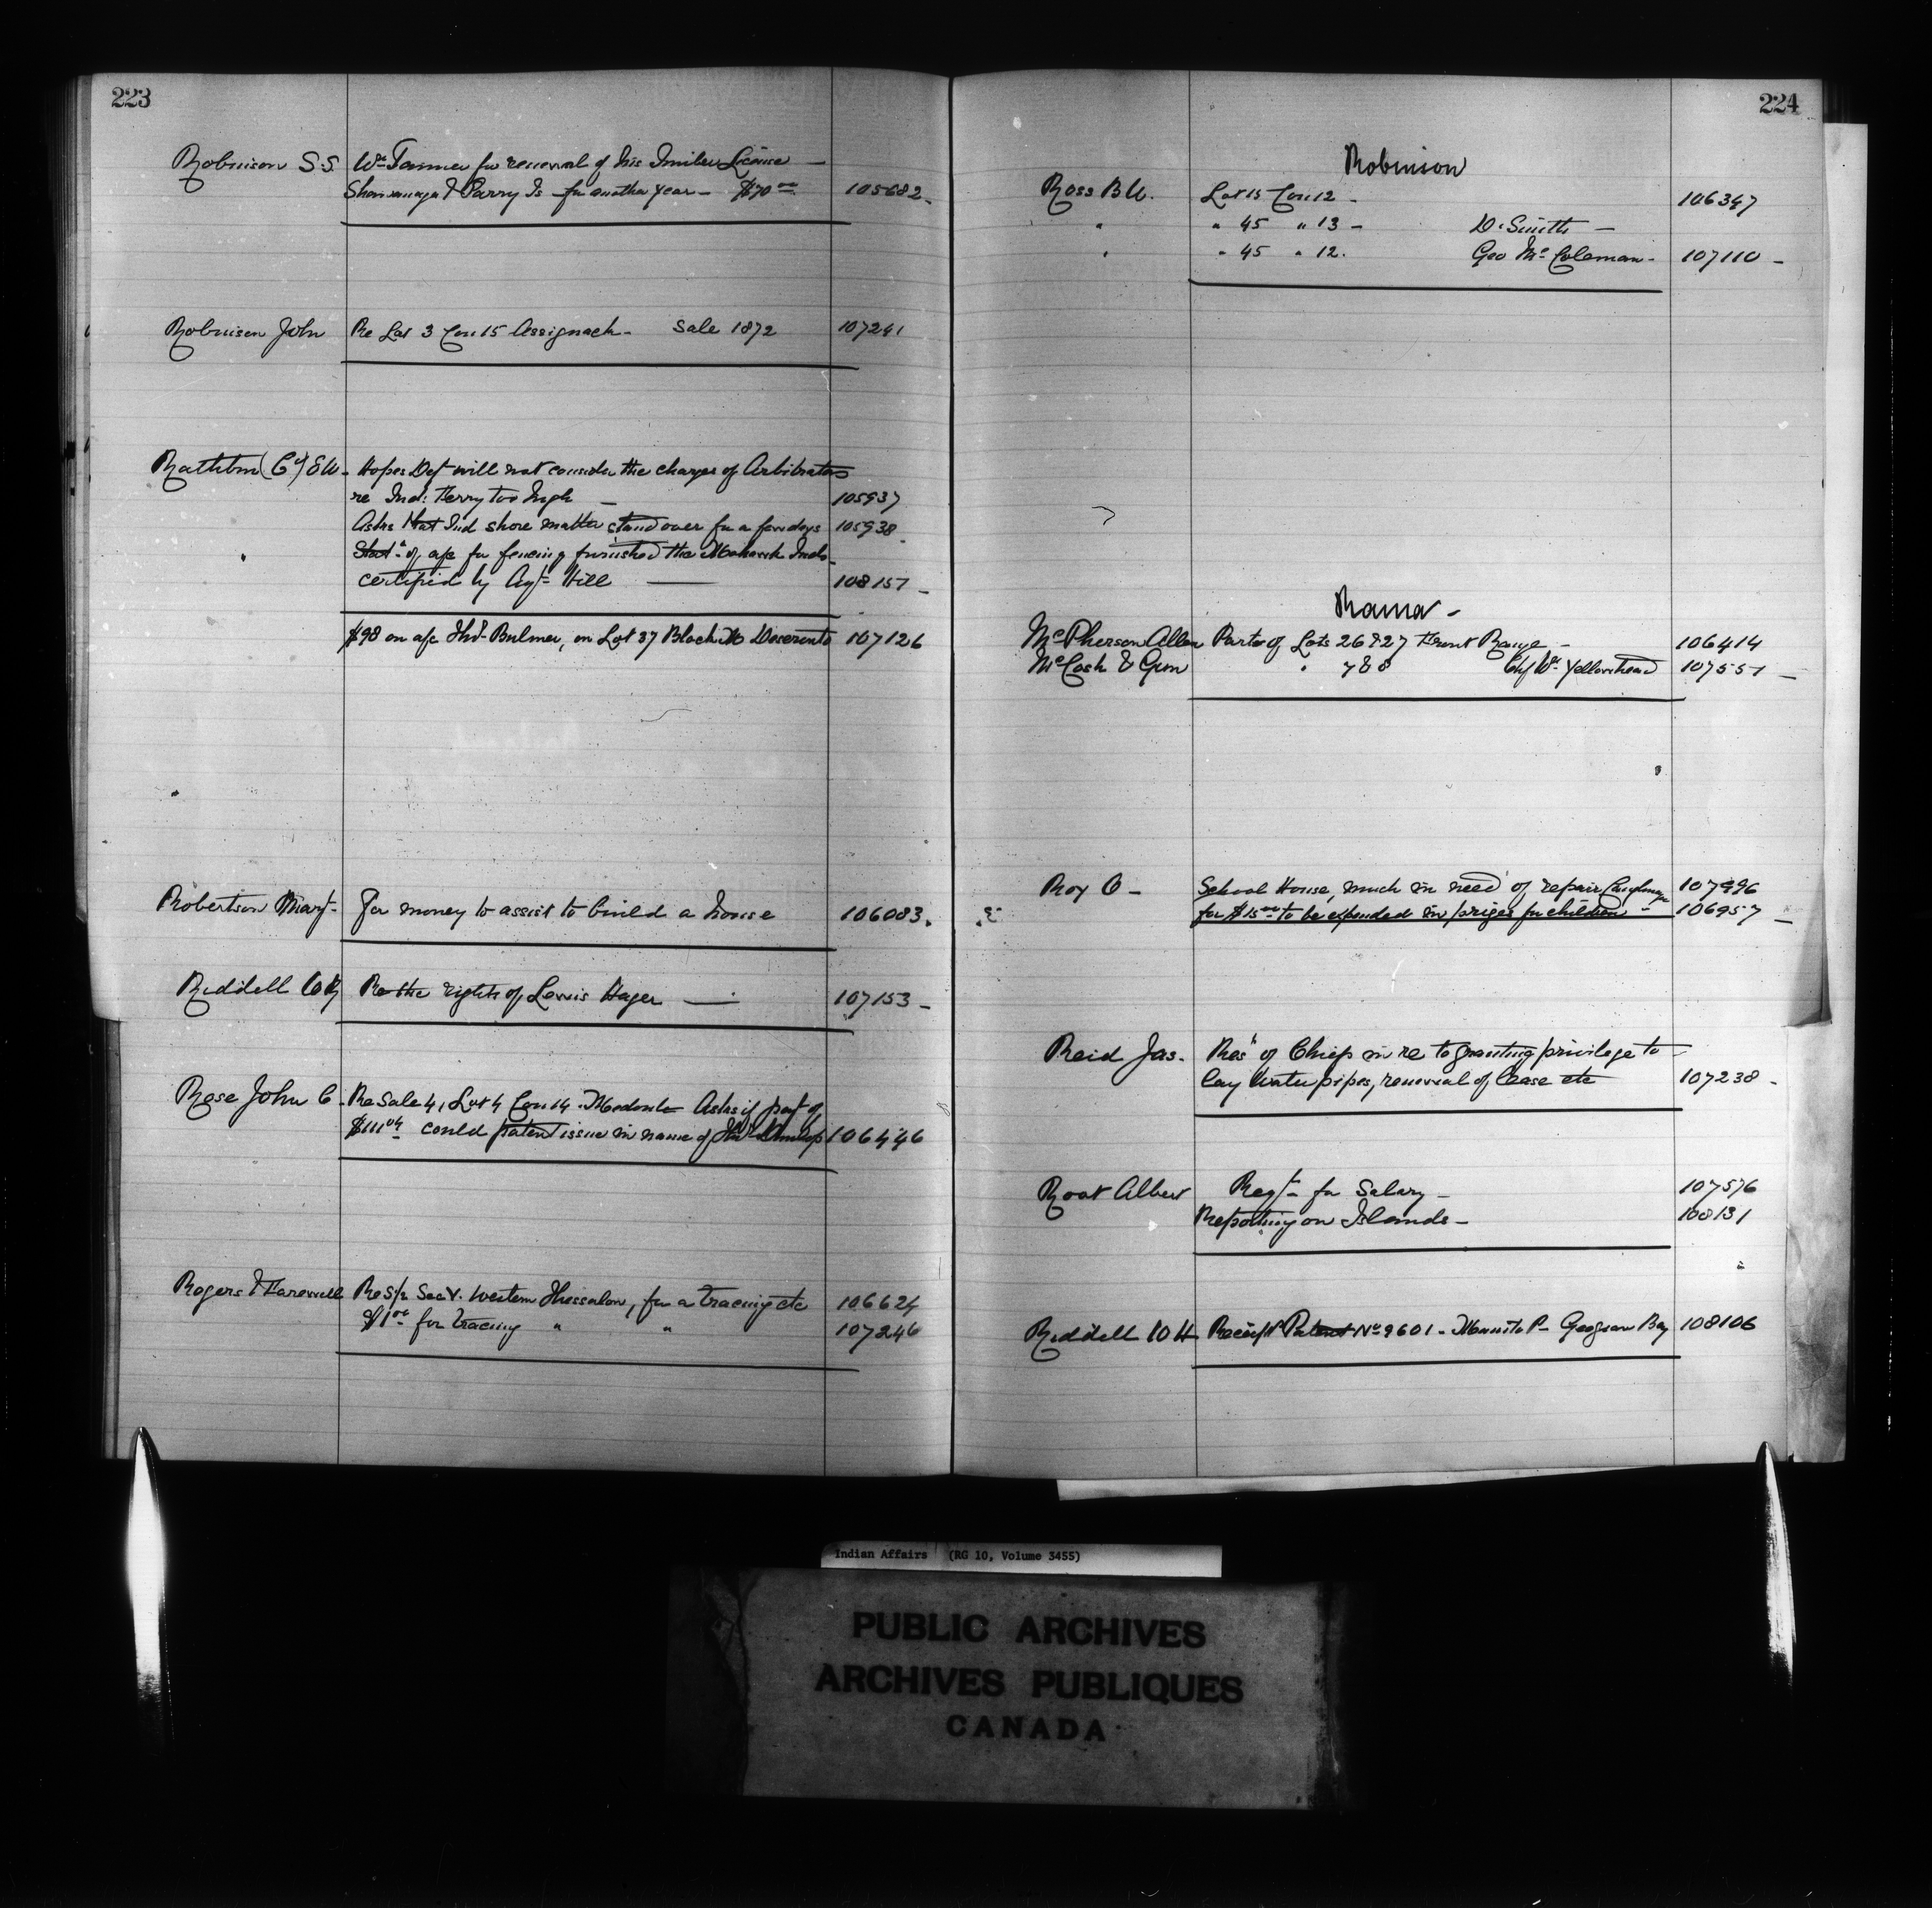 223
Robinson S.S. Wm Tanner for renewal of his Timber License —
Shawanaga & Parry Is — for another year — $70 00 105682 -
Robinson John Re Lot 3 Con 15 Assignack - Sale 1872 107241
Rathbun (Co) E W - Hopes Dept will not consider the charges of Arbitrators
re Ind: Ferry too high — 105937
Asks that Ind shore matter stand over for a few days 105938
" Statt of a/c for fencing furnished the Mohawk Inds -
certified by Agt Hill — 108151 -
$98 on a/c Thos Bulmer, on Lot 37 Block Deseronto 107126
Robertson Mary - For money to assist to build a house 106083.
Riddell Re the rights of Lewis Hager — 107153 -
Rose John C - Re Sale 4, Lot 4 Con 14 - Medonte Asks if payt of
$111 04 could patent issue in name of Dunlop 106446
Rogers & Farewell Re S 1/2 Sec V. Western Thessalon, for a tracing etc 106624
$1 00 for tracing " " 107246
224
Robinson
Ross B W. Lot 15 Con 12 - 106347
" " 45 " 13 - D. Smith —
" " 45 " 12. Geo Mc Coleman - 107110 -
Rama -
McPherson Allan Parts of Lots 26 & 27 Front Range - 106414
McCosh & Gunn " 7 & 8 Chf Wm Yellowhead 107551 -
Roy O - School House, much in need of repair Caughnaga 107996
for $15 00 to be expended in prizes for children - 106957 -
Reid Jas. Resn of Chiefs in re to granting privilege to -
lay water pipes, renewal of lease etc 107238 -
Root Albert Reqt for Salary - 107576
Reporting on Islands - 108131
Riddell W H Receipt Patent No 9601 - Georgian Bay 108106
Indian Affairs (RG 10, Volume 3455)
PUBLIC ARCHIVES
ARCHIVES PUBLIQUES
CANADA